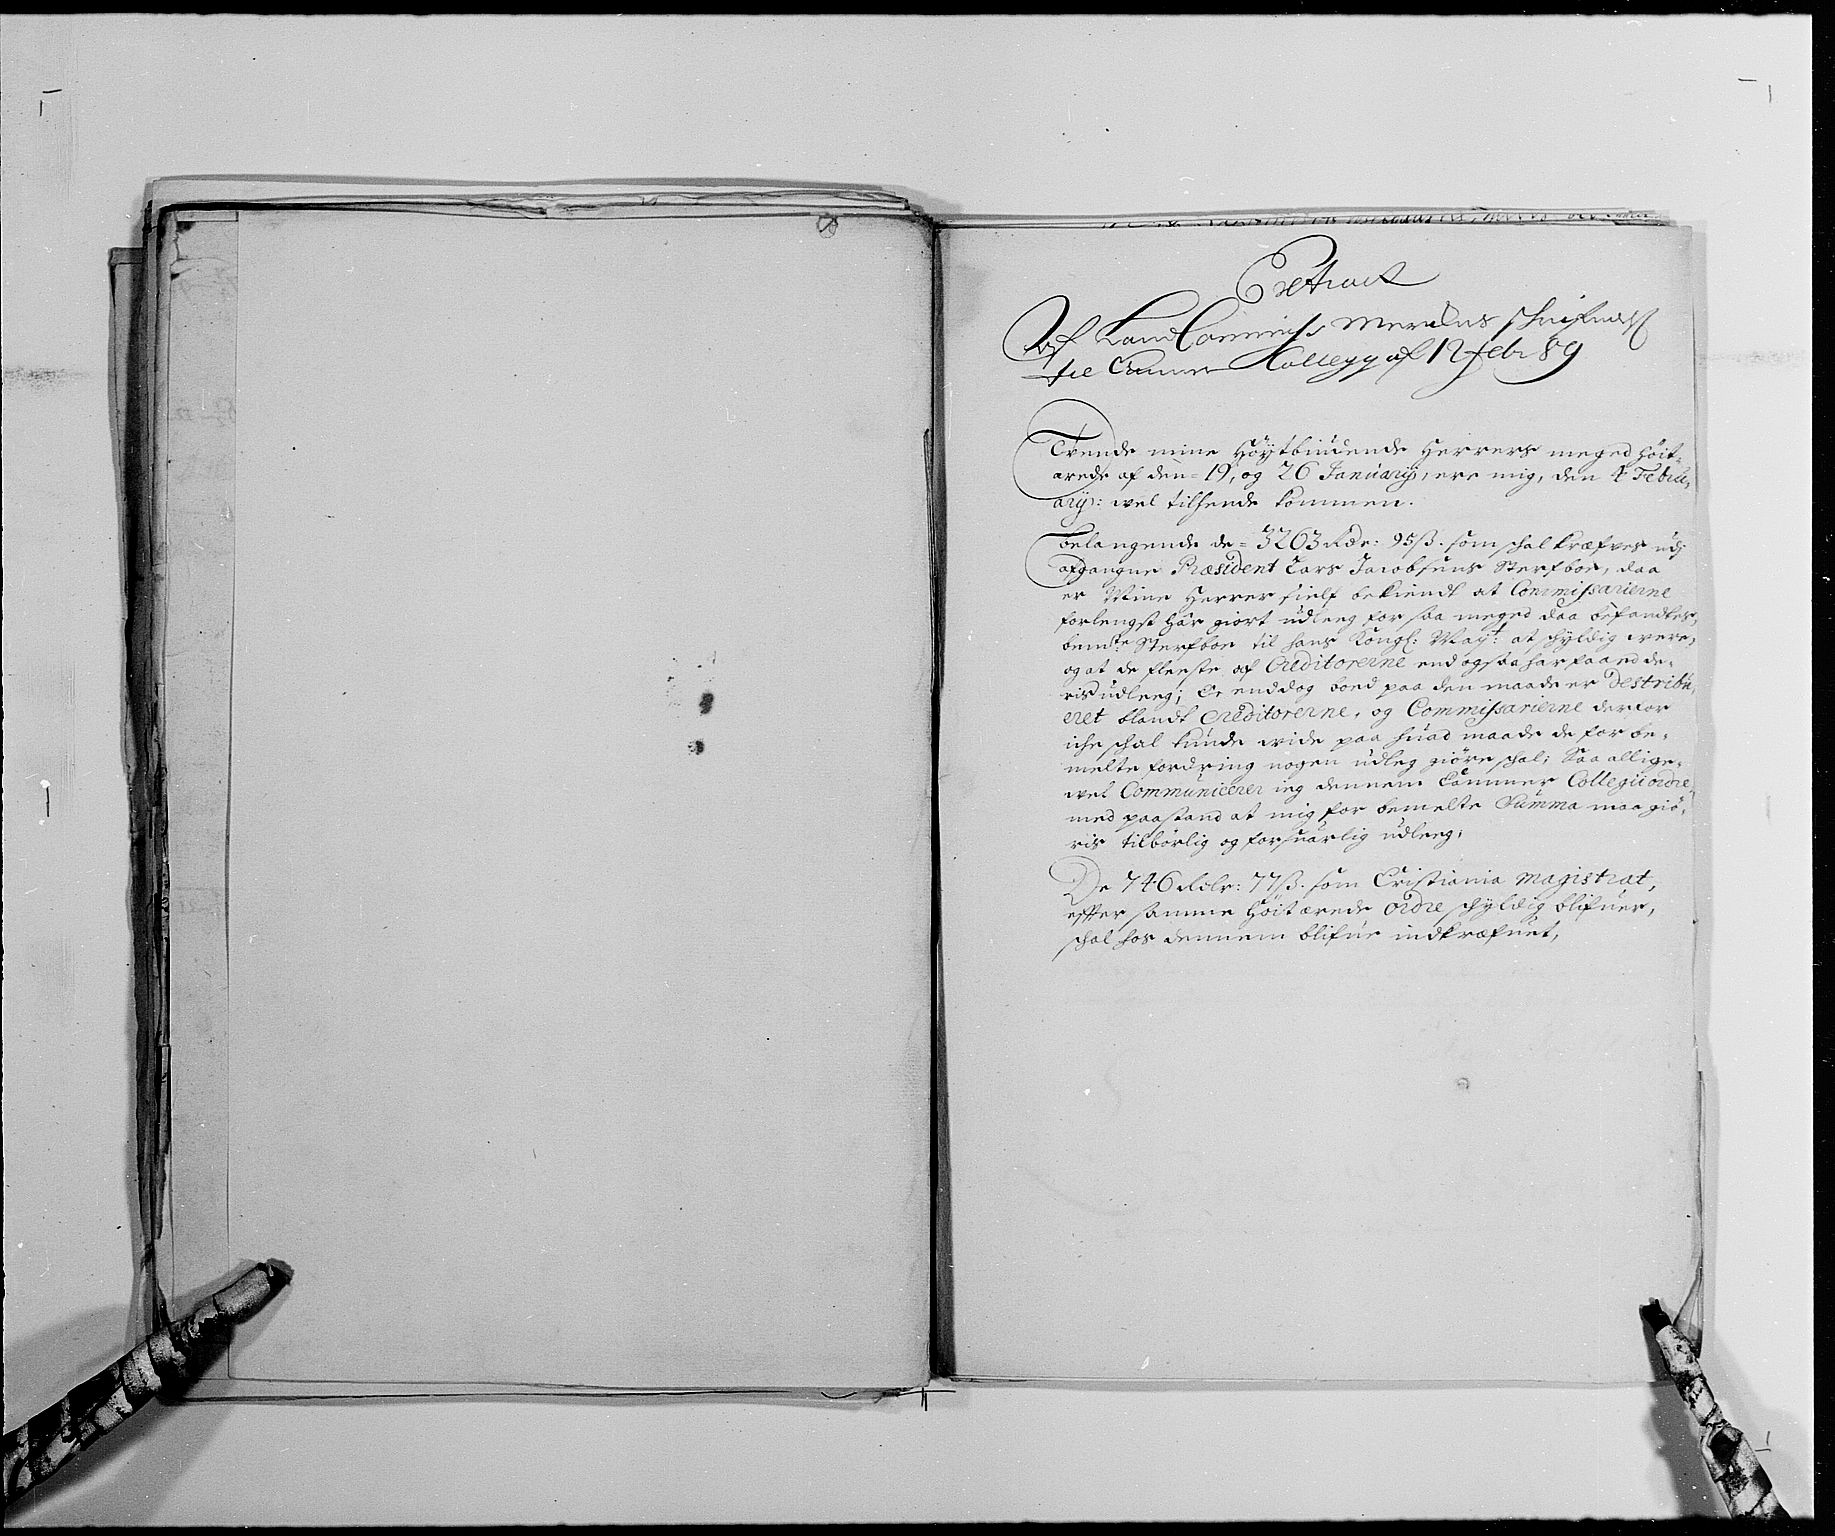 Extract
Af Land Commiss: Merckers skrifvelse
til Cammer Collegy af 12 Febr 89
Tvende mine Høytbiudende Herrers meged Høit-
ærede af den 19, og 26 Januarij, ere mig, den 4 Febru-
arij: vel tilhende kommen.
Belangende de 3263 Rdr: 95ß. som schal kræfves udj
afgangne Præsident Lars Jacobsens Sterfboe, daa
er Mine Herrer sielf bekiendt at Commissarierne
forlengst har giort udleeg for saa meged daa befandtes,
bemte Sterfboe til hans Kongl: Mayt: at schyldig were,
og at de fleeste af Creditorerne end ogsaa har faaed de-
ris udleeg; Er end dog boed paa den maade er Destribu-
eret blandt Creditorerne, og Commissarierne derfor
iche schal kunde wide paa huad maade de for be-
melte fordring nogen udleg giøre schal; Saa allige-
wel Communicerer ieg dennem Cammer Collegii ordre,
med paastand at mig for bemelte Summa maa giø-
ris tilbørlig og forsuarlig udleeg;
De 746 Rdlr: 77ß. som Cristiania Magistrat,
effter samme Høitærede ordre schyldig blifuer,
schal hos dennem blifue indkræfuet,